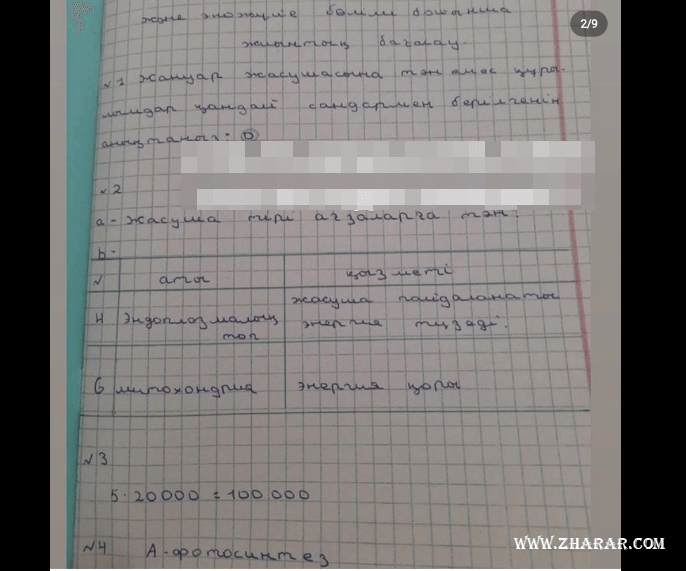 және экожүйе бөлімі бойынша
жиынтық бағалау.
2/9
№1 жануар жасушасына тән емес құры-
лымдар қандай сандармен берілгенін
анықтаңыз: D
№2
a - жасуша тірі ағзаларға тән.
b -
№ аты қызметі
4 Эндоплозмалық тор жасуша пайдаланаты энергия түзеді.
6 митохондрия энергия қоры
№3
5·20000 = 100 000
№4 А-фотосинтез
WWW.ZHARAR.COM